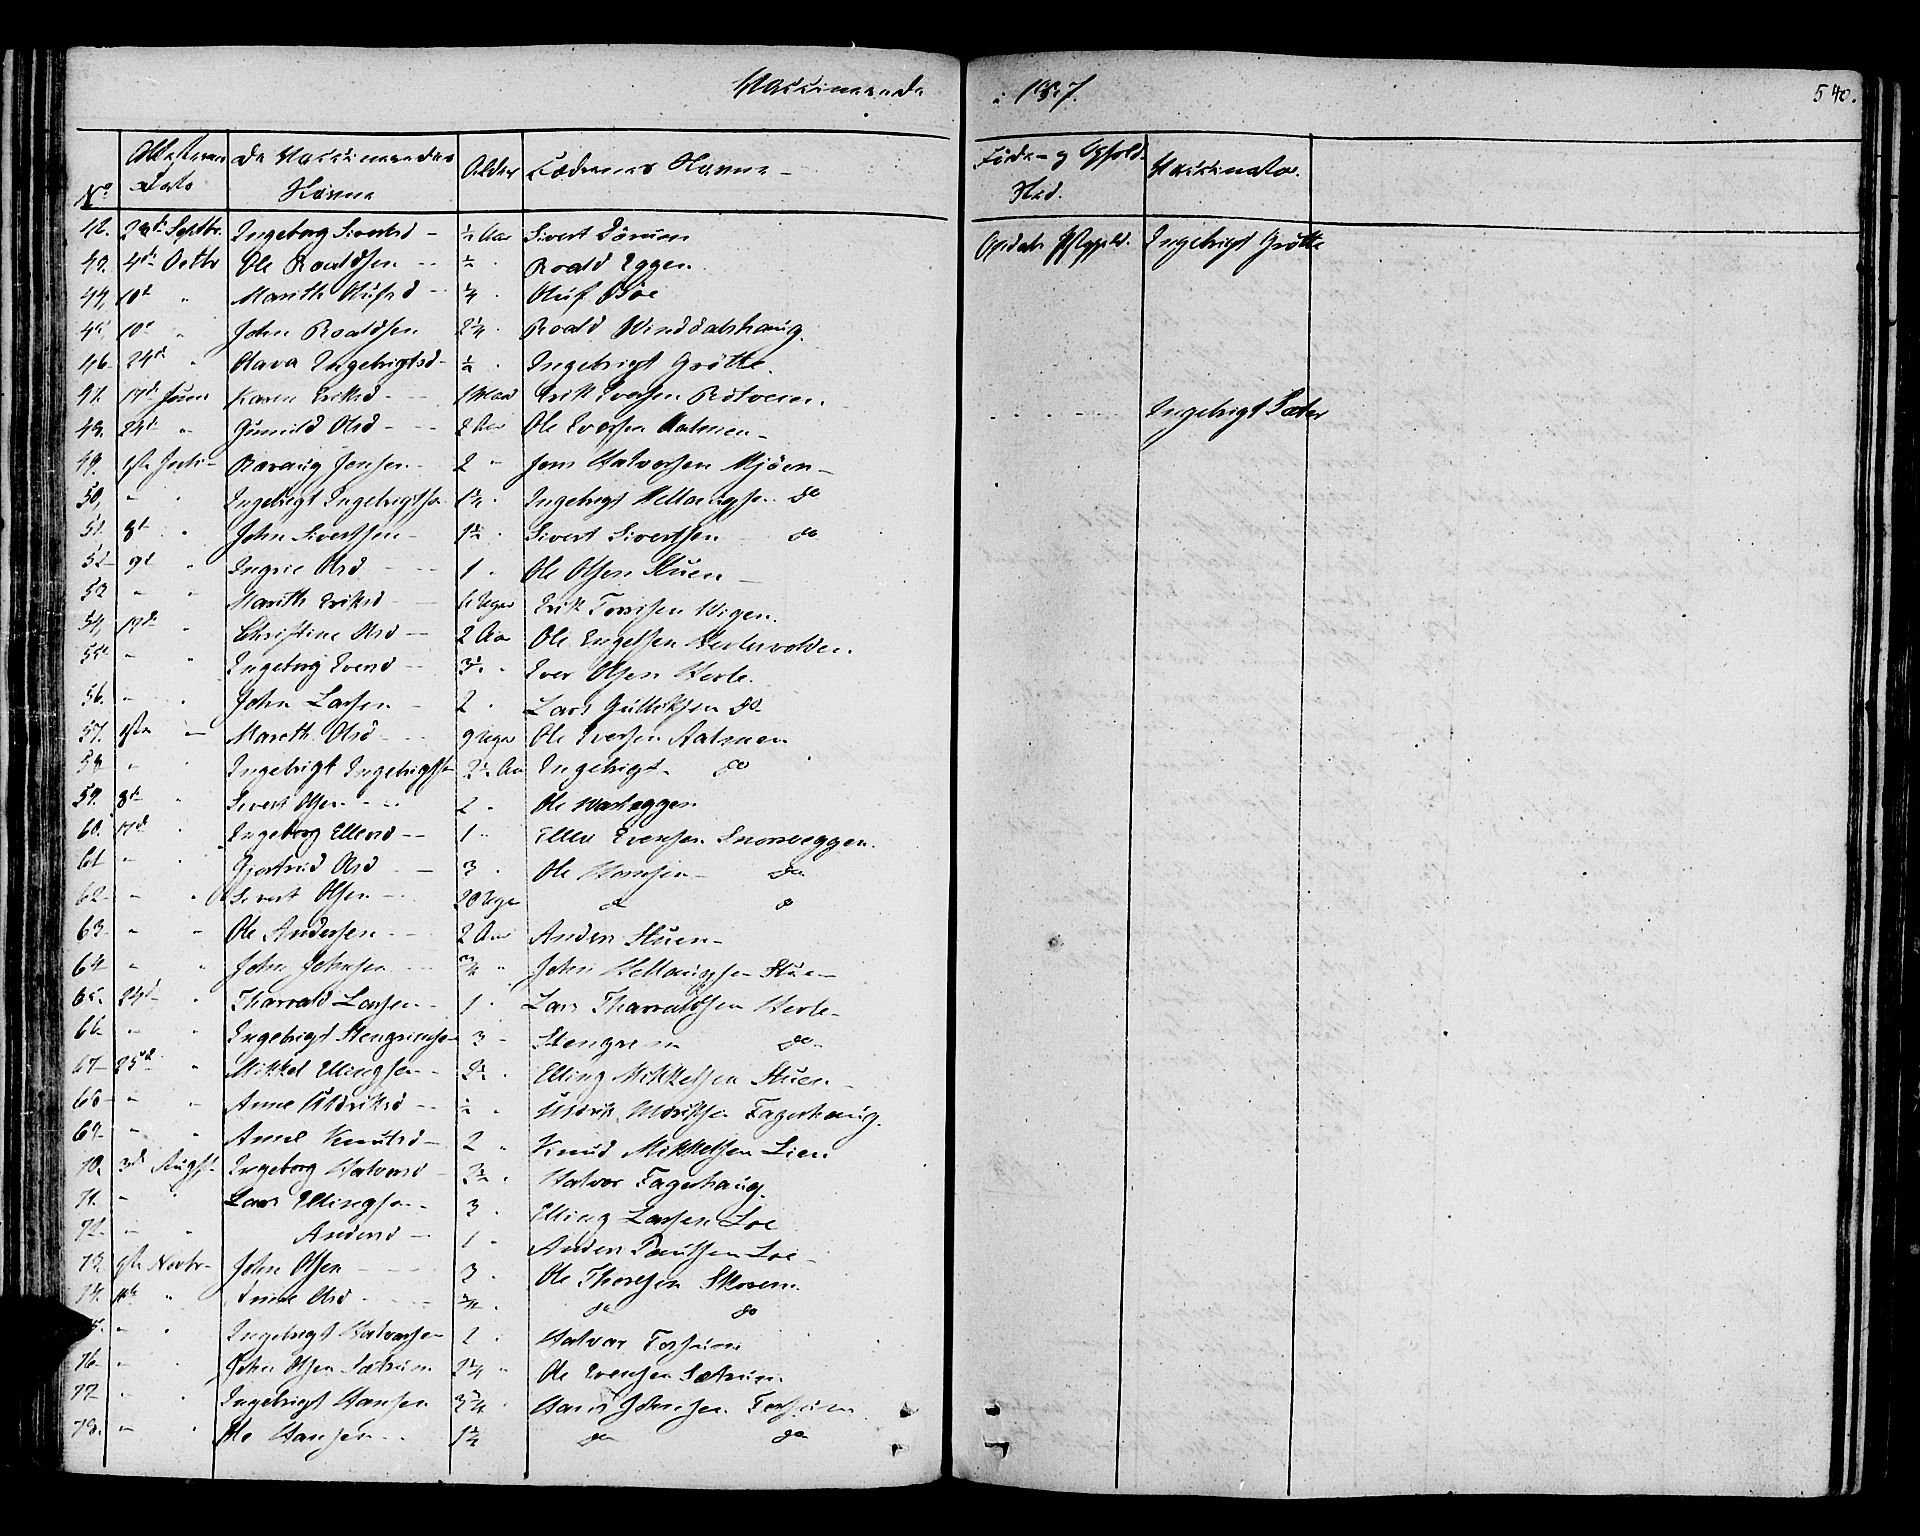 Vaccinerede
i 1837.
540.
No
Attestens Dato
De Vaccineredes Navne
Alder
Fædrenes Navne
Føde- og Opholds Sted.
Vaccinator.
42. Septbr. Ingeborg Sivertsd - ½ Aar Sivert Dørum Opdals Præstegjeld. Ingebrigt Grøtte
43. 4de Octbr Ole Roaldsen - ½ " Roald Eggen
44. 10de " Marith Olufsd - ¼ " Oluf Böe
45. 10de " John Roaldsen 2¼ " Roald Vinddalshaug.
46. 24de " Olava Ingebrigtsd - ½ " Ingebrigt Grøtte.
47. 17de Juni Karen Eriksd - Erik Iversen
48. 24de " Gunild Olsd - 2 Aar Ole Iversen Aalmen - Ingebrigt Sæter
49. 1ste Juli Jonsen - 2 " Jons Halvorsen Mjöen -
50. " " Ingebrigt Ingebrigtsen Ingebrigt do
51. 8de " John Sivertsen - 1½ " Sivert Sivertsen do
52. 9de " Ingrie Olsd - 1 " Ole Olsen Stuen -
53. " " Marith Eriksd - 6 Uger Erik Vigen.
54. 17de " Christine Olsd - 2 Aar Ole Engelsen
55. " " Ingeborg Iversd - Iver Olsen Herle.
56. " " John Larsen - 2 " Lars Gulliksen do
57. 1ste " Mareth Olsd - 9 Uger Ole Iversen Aalmen
58. " " Ingebrigt Ingebrigtsen 2½ Aar Ingebrigt - do
59. 8de " Sivert Olsen - 2 " Ole
60. 17de " Ingeborg Ellevsd - 1 " Ellev Evensen Snoeveggen.
61. " " Gjertrud Olsd - 3 " Ole Hansen - do
62. " " Sivert Olsen - 20 Uger do do
63. " " Ole Andersen - 2 Aar Anders Stuen -
64. " " John Johnsen - ¾ " John Stuen
65. 24de " Tharald Larsen - 1 " Lars Tharaldsen Herle -
66. " " Ingebrigt Stengrimsen 3 " Stengrim do
67. 25de " Mikkel Ellingsen - 2½ " Elling Mikkelsen Stuen -
68. " " Anne Uldriksd - ½ " Uldrik Fagerhaug.
69. " " Anne Knutsd - 2 " Knud Mikkelsen Lien
70. 3de Augst. Ingeborg Halvorsd - 3½ " Halvor Fagerhaug.
71. " " Lars Ellingsen - 3 " Elling Larsen Loe
72. " " Andersd - 1 " Anders Loe -
73. Novbr. John Olsen - 3 " Ole Thoresen
74. " Anne Olsd - ¾ " do do
75. " " Ingebrigt Halvorsen 2 " Halvor Forsum
76. " " John Olsen Sætrum 2¼ " Ole Evensen Sætrum
77. " " Ingebrigt Hansen 3¾ " Hans Johnsen Forsum
78. " " Ole Hansen - 1½ do do